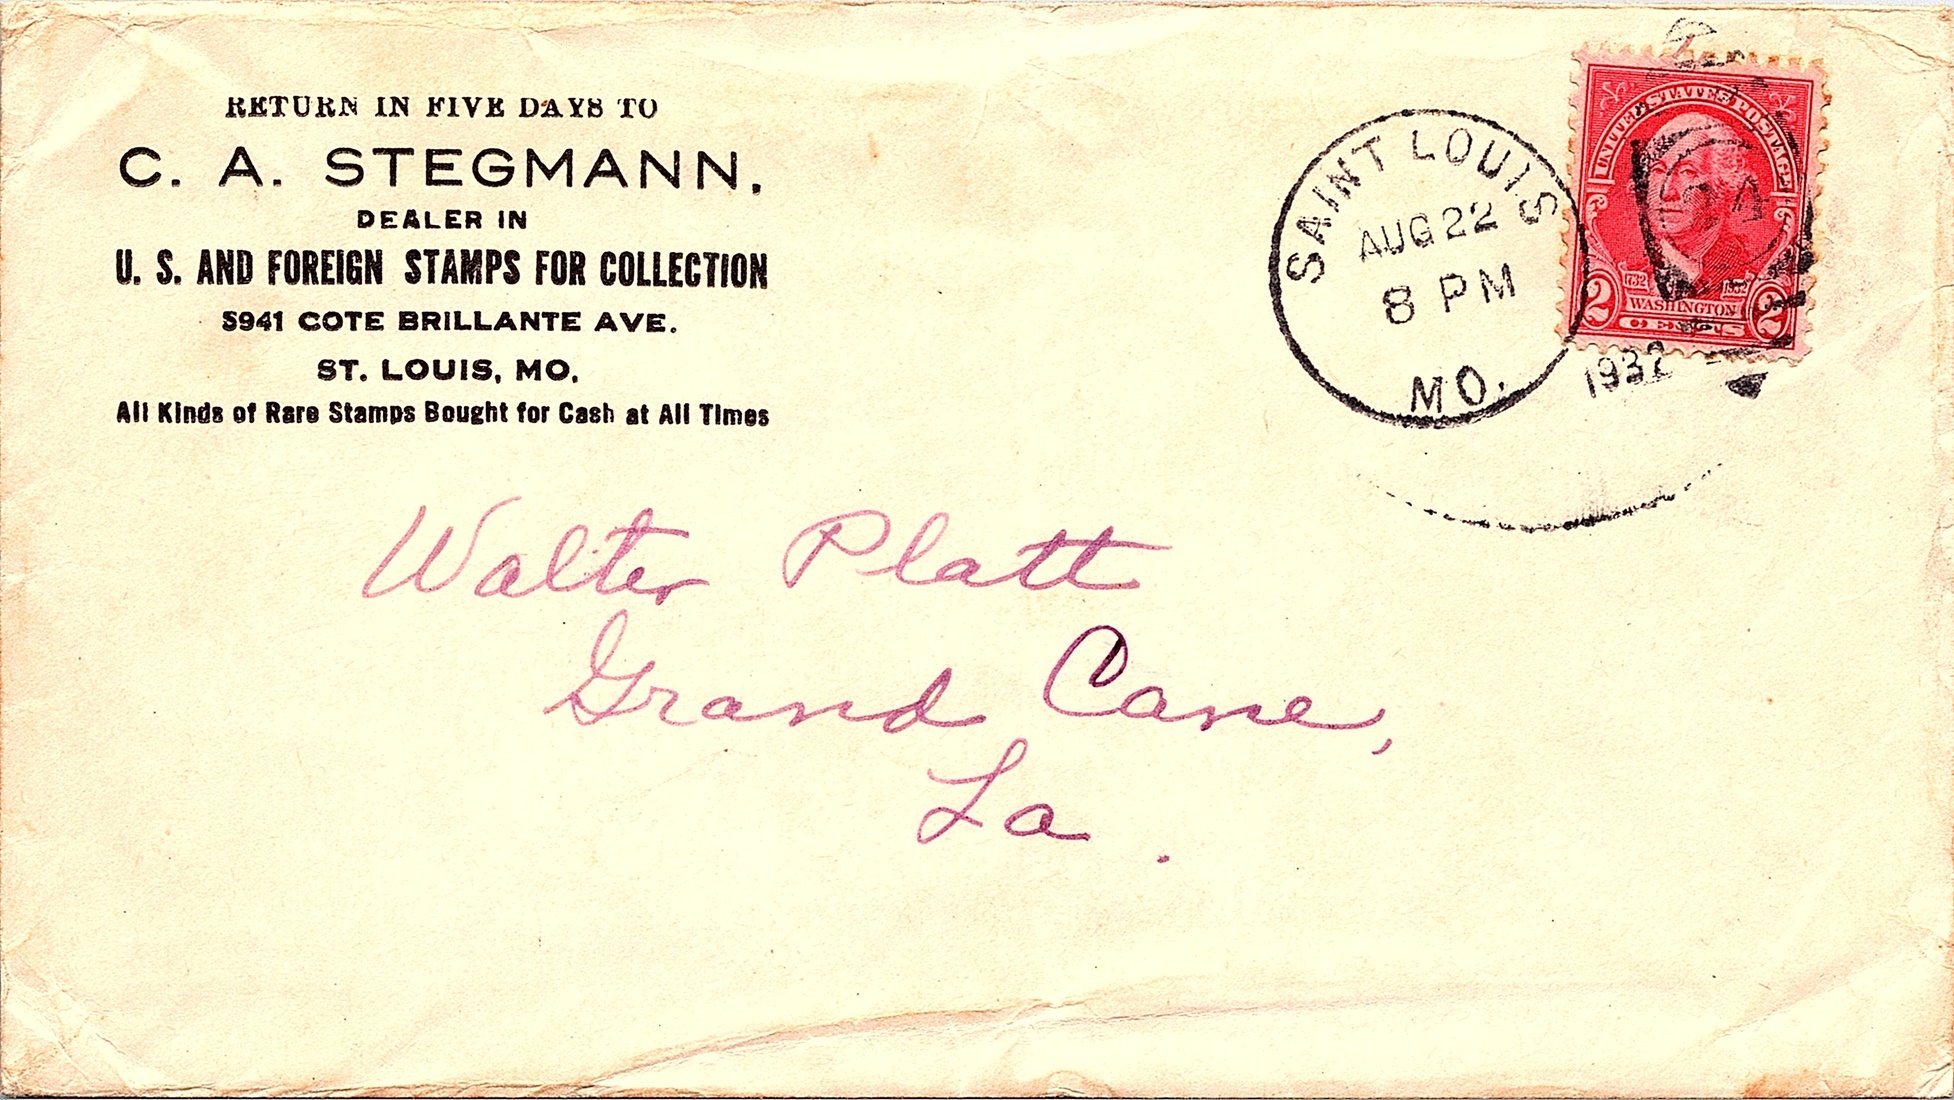 RETURN IN FIVE DAYS TO
C. A. STEGMANN,
DEALER IN
U. S. AND FOREIGN STAMPS FOR COLLECTION
5941 COTE BRILLANTE AVE.
ST. LOUIS, MO.
All Kinds of Rare Stamps Bought for Cash at All Times
SAINT LOUIS
AUG 22
8 PM
MO.
1932
UNITED STATES POSTAGE
1732 1932
WASHINGTON
2 CENTS 2
Walter Platt
Grand Cane,
La.